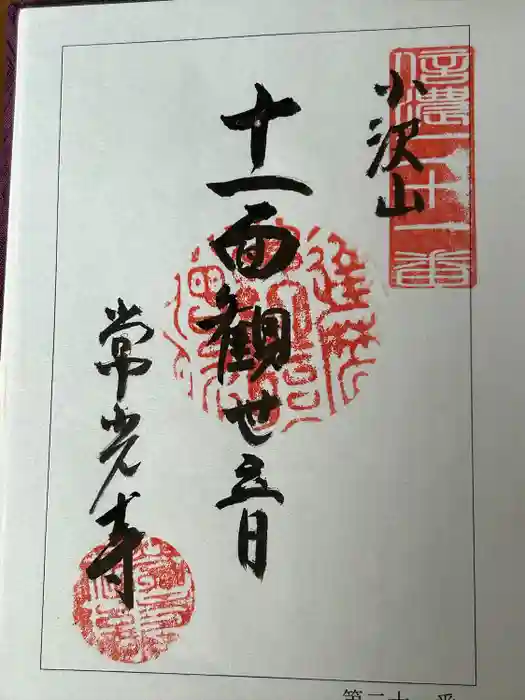 信濃二十一番
小沢山
十一面観世音
常光寺
第二十一番